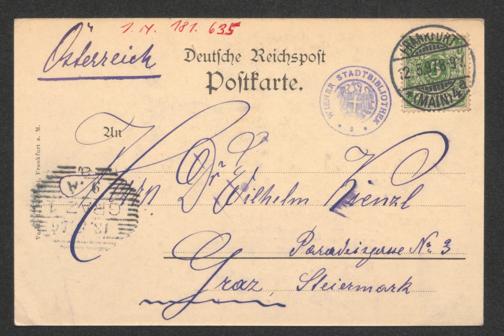 I. N. 181.635
Österreich
Deutsche Reichspost
Postkarte.
WIENER STADTBIBLIOTHEK
FRANKFURT
(MAIN)
An
Herrn Dr. Wilhelm Kienzl
Paradeisgasse No. 3
Graz, Steiermark